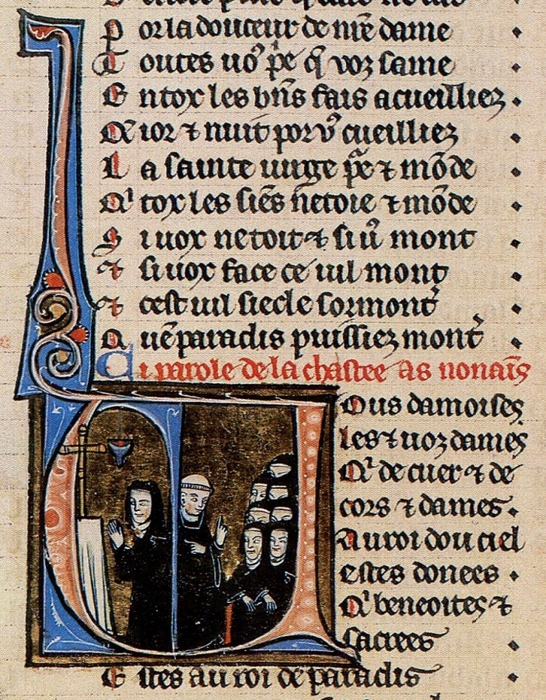 P or la douceur de mē dame
T outes uoˀ pͤe q̄ voz lame
E n tox les bn̄s fais acueilliez
Q' ior ⁊ nuit por vͦ cueilliez
L a sainte uirge pͤe ⁊ mōde
Q' tox les siēs netoie ⁊ mōde
S i uox netoit ⁊ si ū mont
⁊ si uox face ce uil mont
⁊ cest uil siecle sormont
Q uē paradis puissiez mont
Ci parole de la chastee as nonaīs
Uous damoise
les ⁊ uoz dames
Q' de cuer ⁊ de
cors ⁊ dames
Au roi dou ciel
estes donees
Q' beneoites ⁊
sacrees
E stes au roi de paradis